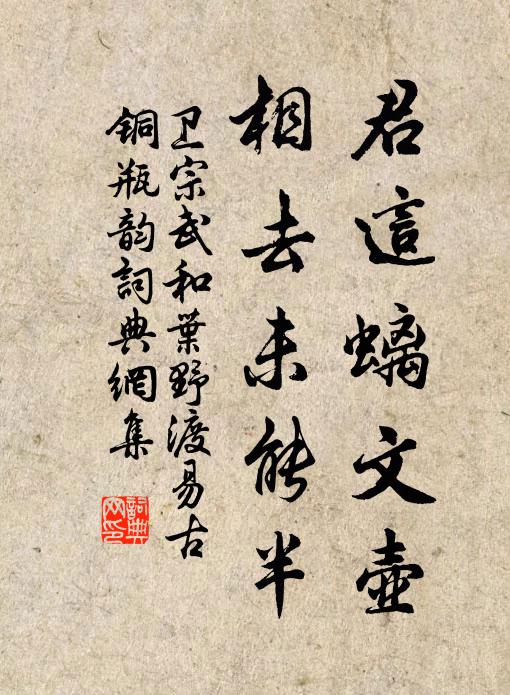 君這螭文壺
相去未能半
卫宗武和葉野渡易古
铜瓶韵詞典網集
詞典网印